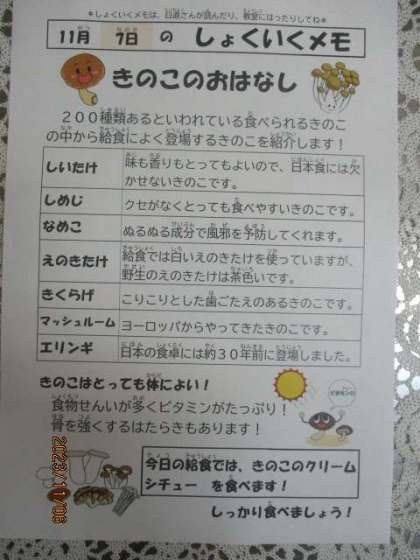 ※しょくいくメモは、日直さんが読んだり、教室にはったりしてね※
11月 7日 の しょくいくメモ
きのこのおはなし
２００種類あるといわれている食べられるきのこ
の中から給食によく登場するきのこを紹介します！
しいたけ 味も香りもとってもよいので、日本食には欠
かせないきのこです。
しめじ クセがなくとっても食べやすいきのこです。
なめこ ぬるぬる成分で風邪を予防してくれます。
えのきたけ 給食では白いえのきたけを使っていますが、
野生のえのきたけは茶色いです。
きくらげ こりこりとした歯ごたえのあるきのこです。
マッシュルーム ヨーロッパからやってきたきのこです。
エリンギ 日本の食卓には約３０年前に登場しました。
きのこはとっても体によい！
食物せんいが多くビタミンがたっぷり！
骨を強くするはたらきもあります！
ビタミンD
今日の給食では、きのこのクリーム
シチュー を食べます！
しっかり食べましょう！
2023/11/06